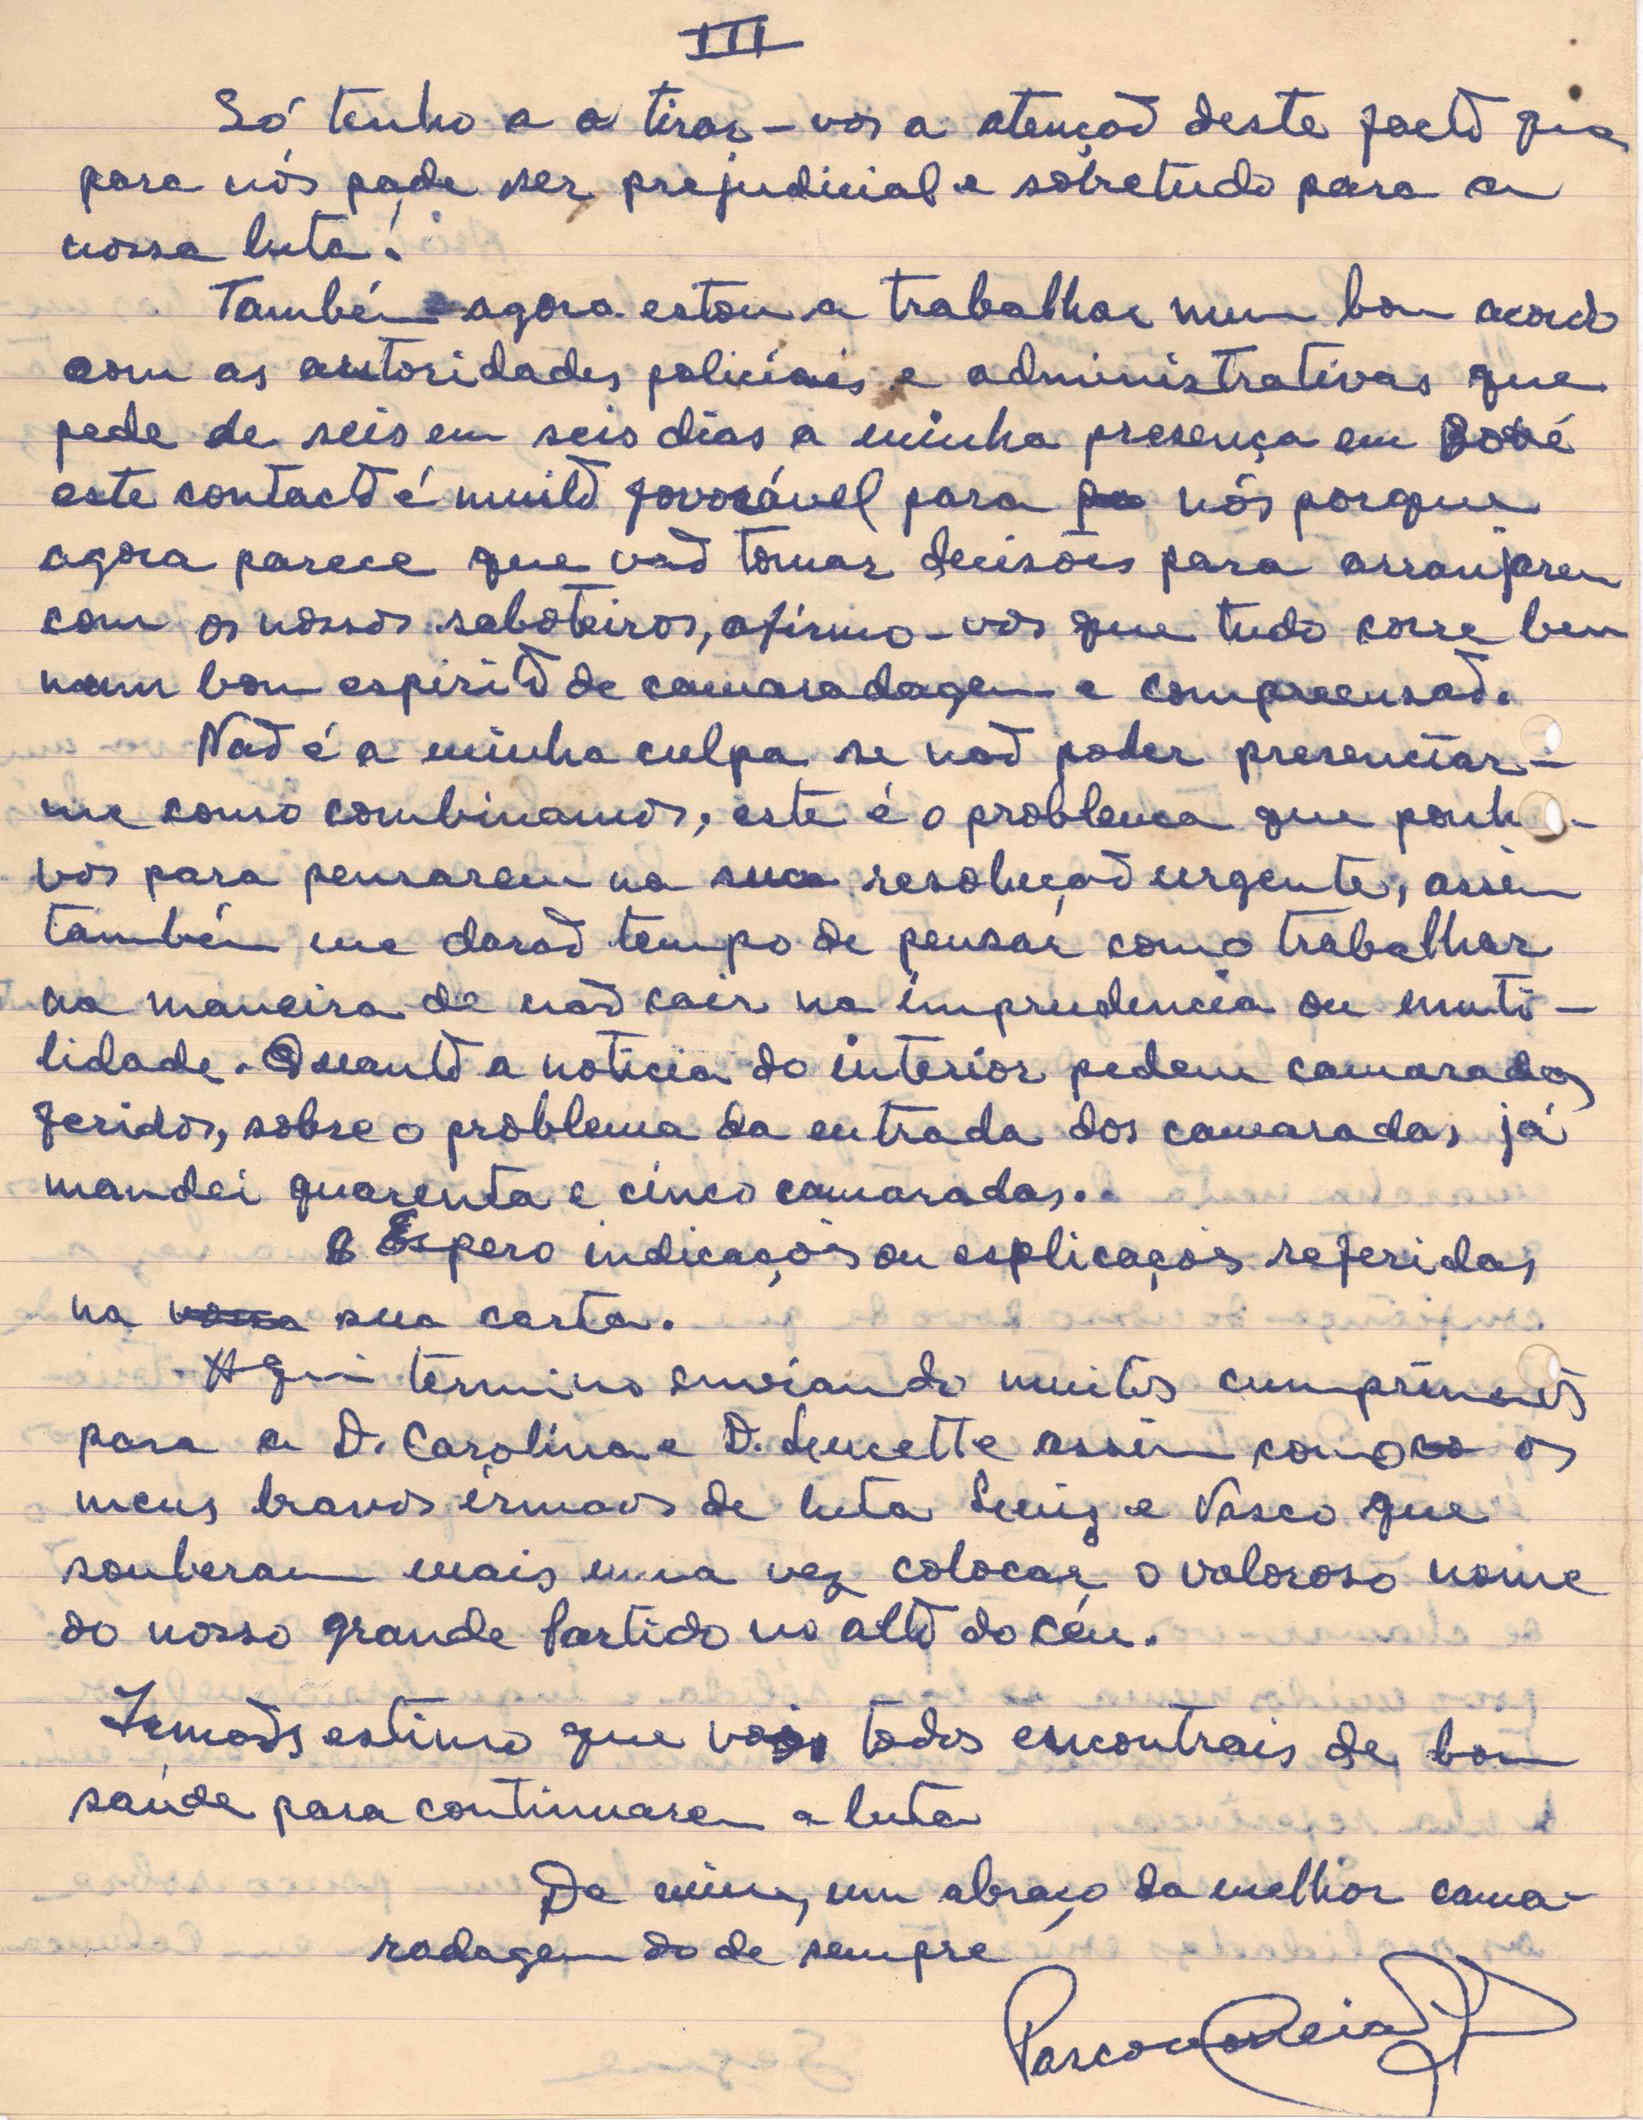 III
Só tenho a a tirar-vos a atençaõ deste factõ que
para nós pode ser prejudicial e sobretudo para a
nossa luta.
Também agora estou a trabalhar num bom acordo
com as autoridades policíais e administrativas que
pede de seis em seis dias a minha presença em
este contactõ é muitõ favorável para nós porque
agora parece que vaõ tomar decisões para arranjarem
com os nossos saboteiros, afirmo-vos que tudo corre bem
num bom espiritõ de camaradagem e compreensaõ.
Naõ é a minha culpa se naõ poder presenciar-
me como combinamos, este é o problema que ponho-
vos para pensarem na sua resoluçaõ urgente, assim
também me daraõ tempo de pensar como trabalhar
na maneira de naõ cair na imprudencia ou inuti-
lidade. Quantõ a noticia do interior pedem camaradas
feridos, sobre o problema da entrada dos camaradas já
mandei quarenta e cinco camaradas.
Espero indicaçois ou esplicaçois referidas
na vossa sua carta.
Aqui termino enviando muitos cumprimentõs
para a D. Carolina e D. Lucette assim como os
meus bravos irmaos de luta Luiz e Vasco que
souberam mais uma vez colocar o valoroso nome
do nosso grande Partido no altõ do céu.
Irmaõs estimo que todos encontrais de bom
saúde para continuarem a luta
De mim, um abraço da melhor cama-
radagem do de sempre
Pascoal Correia